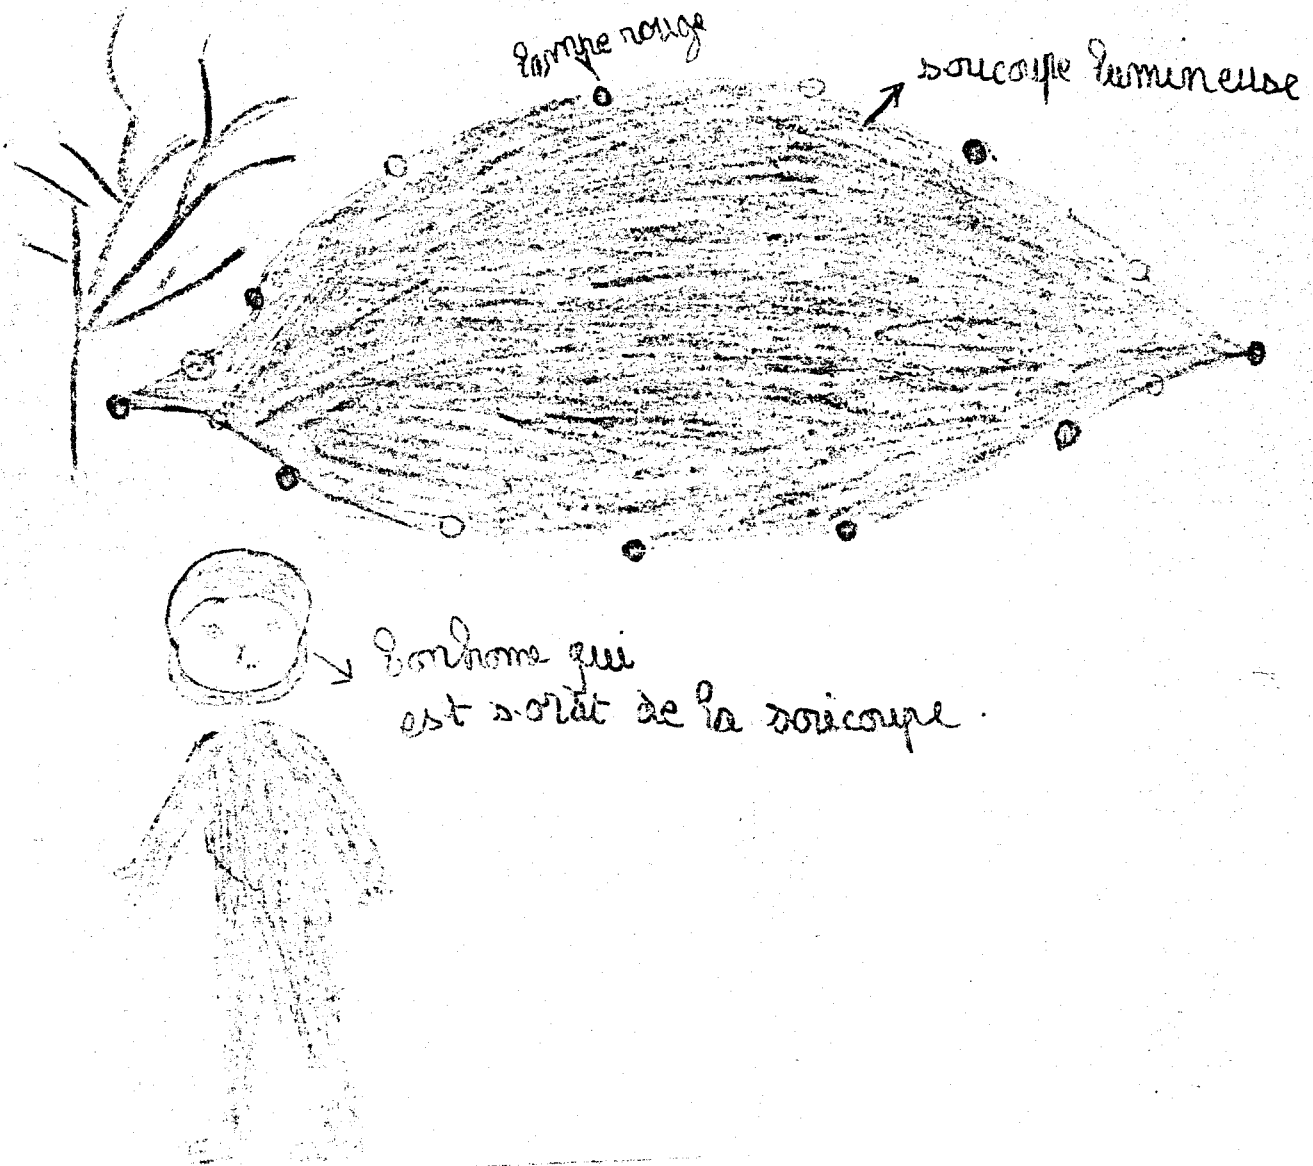 lampe rouge
soucoupe lumineuse
bonhome qui
est sortit de la soucoupe.